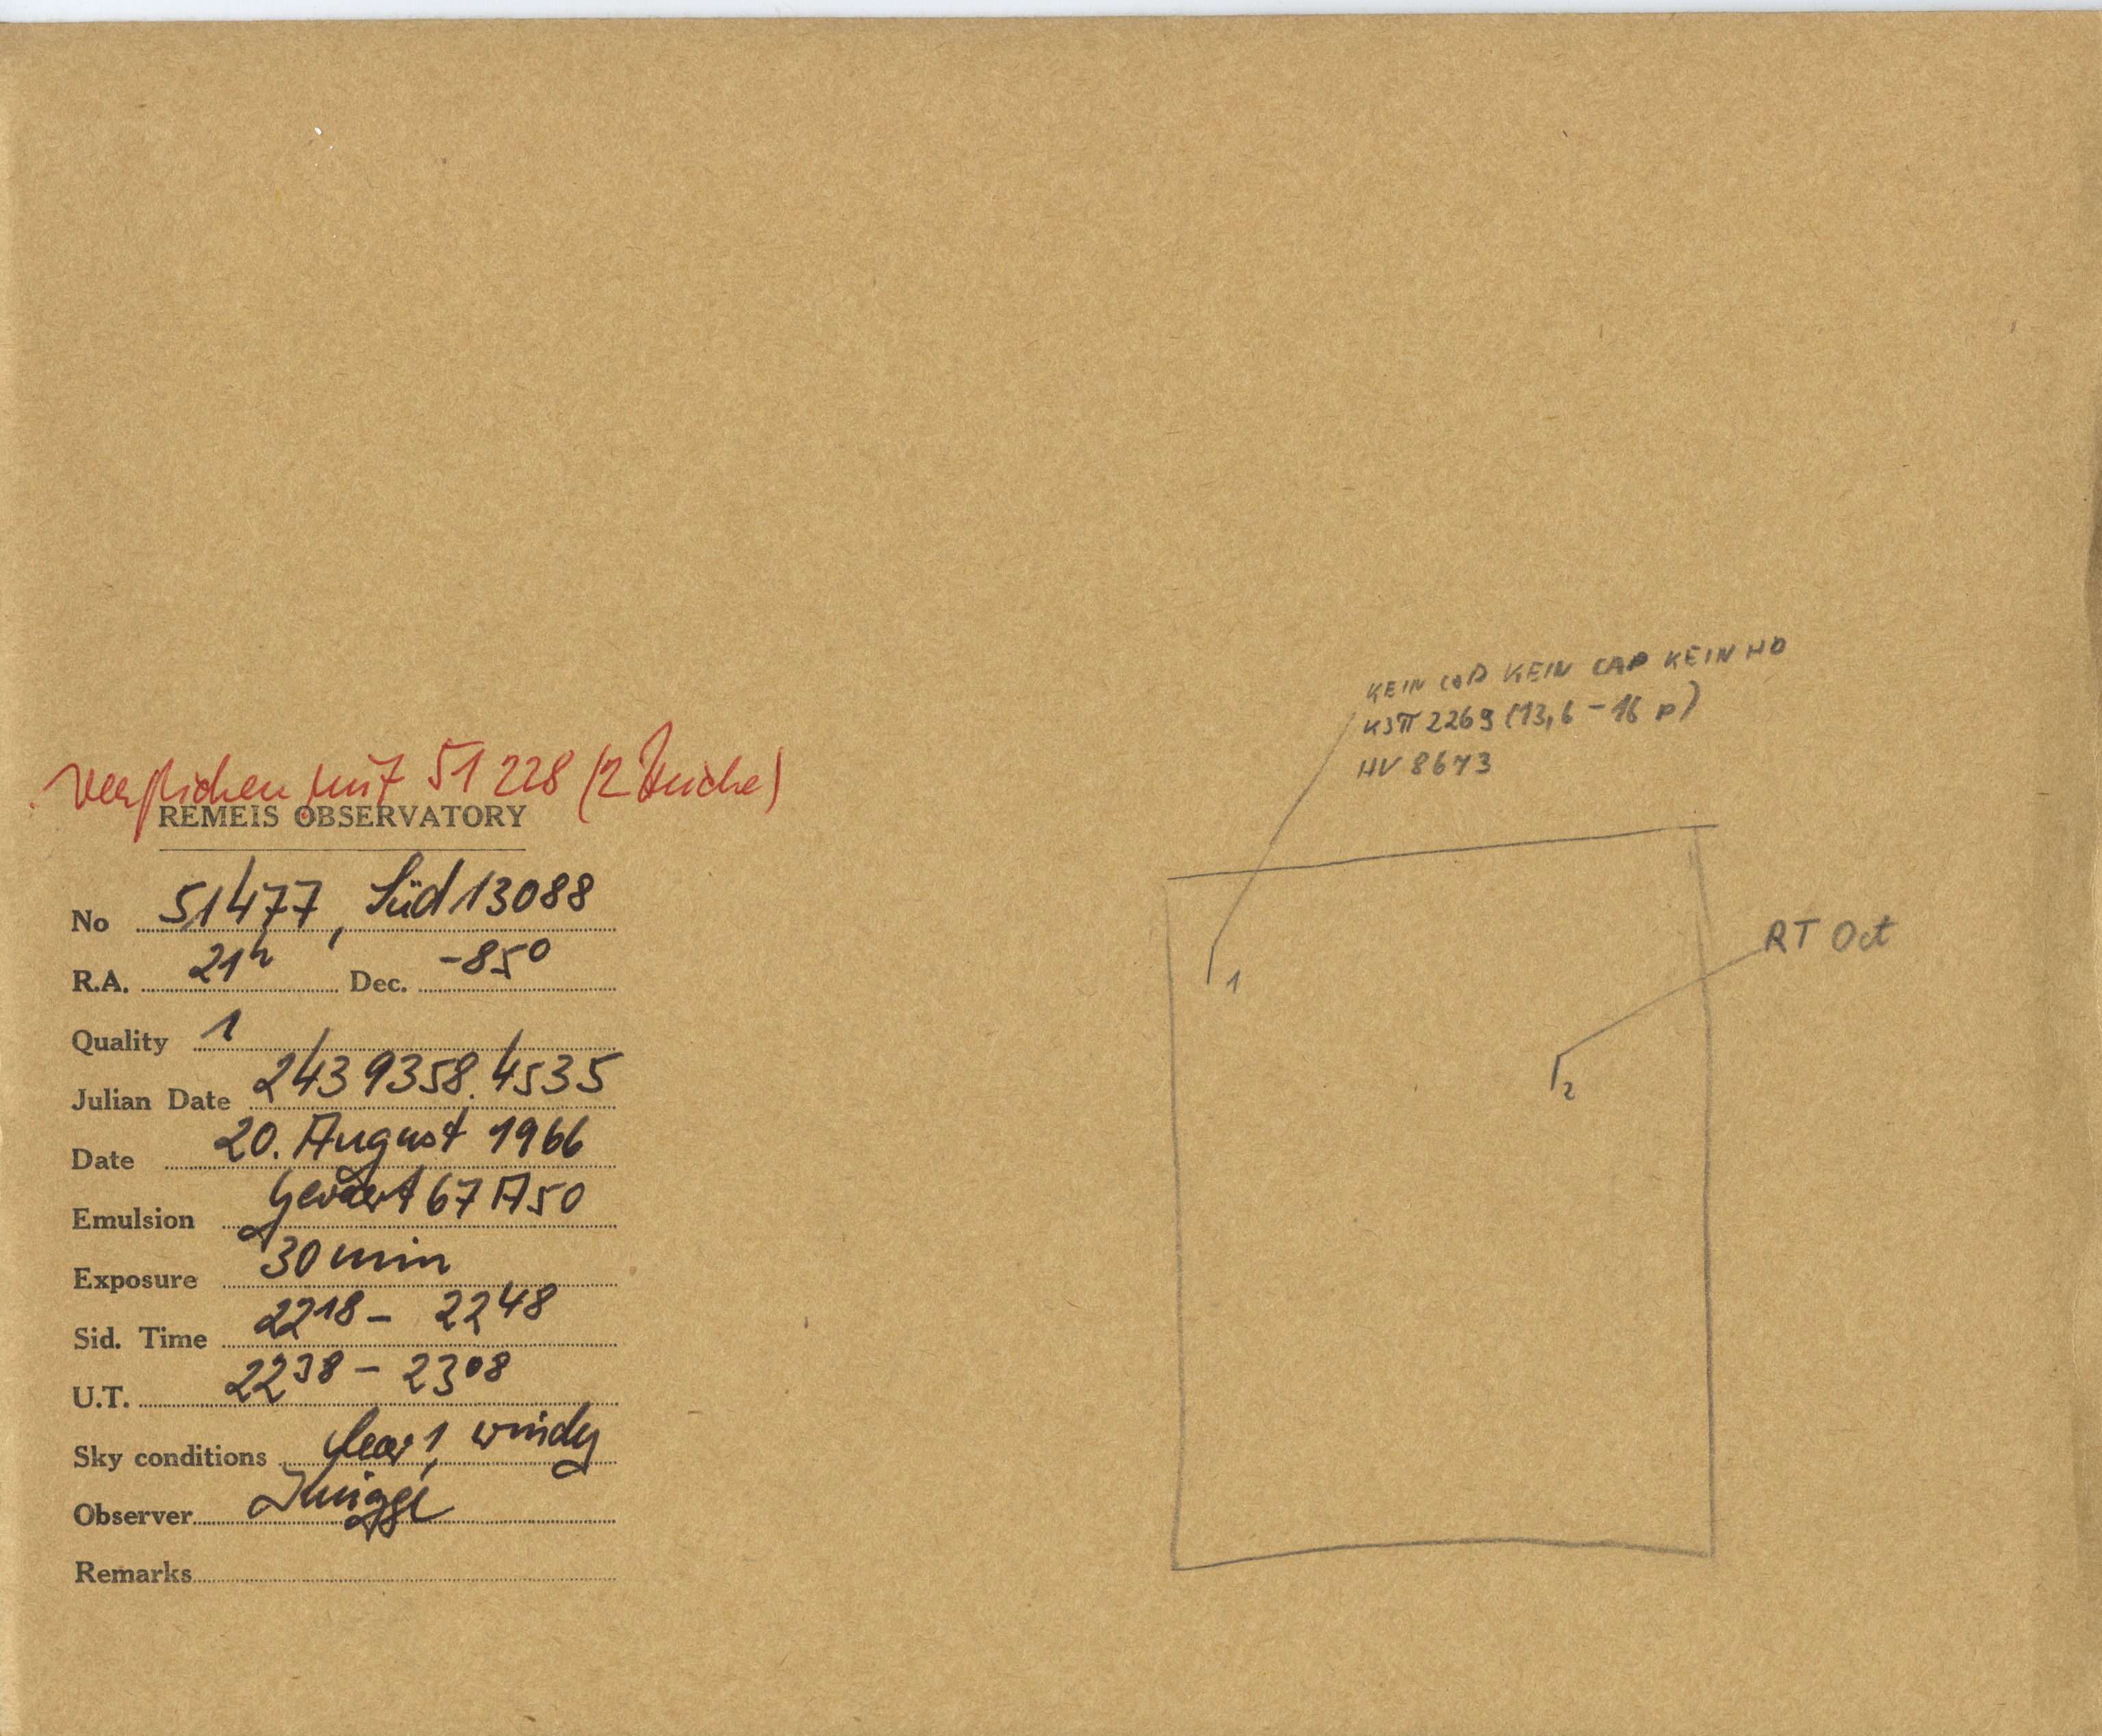 verglichen mit 51228 (2 Striche)
REMEIS OBSERVATORY
No 51477, Süd 13088
R.A. 21h Dec. -85°
Quality 1
Julian Date 2439358.4535
Date 20. August 1966
Emulsion Gevaert 67 A50
Exposure 30 min
Sid. Time 22 18 - 22 48
U.T. 22 38 - 23 08
Sky conditions clear 1, windy
Observer Knigge
Remarks
KEIN COD KEIN CAP KEIN HD
КЗП 2269 (13,6 - 16 p)
HV 8673
1
RT Oct
2